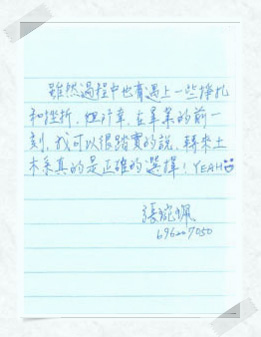 雖然過程中也會遇上一些掙扎
和挫折，但所幸，在畢業的前一
刻，我可以很踏實的說，轉來土
木系真的是正確的選擇！YEAH
張婉珮
696207050